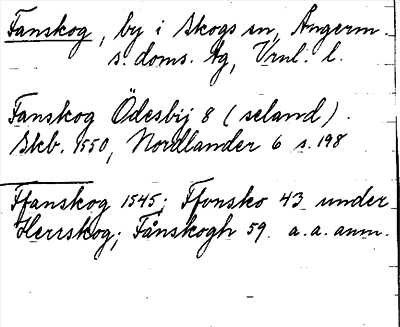 Fanskog, by i Skogs sn, Ångerm.
s. doms. tg, Vrnl. l.
Fanskog Ödesbij 8 (seland).
Skb. 1550, Nordlander 6 s. 198
Ffanskog 1545; Ffonsko 43 under
Herrskog; Fånskogh 59. a.a. anm.